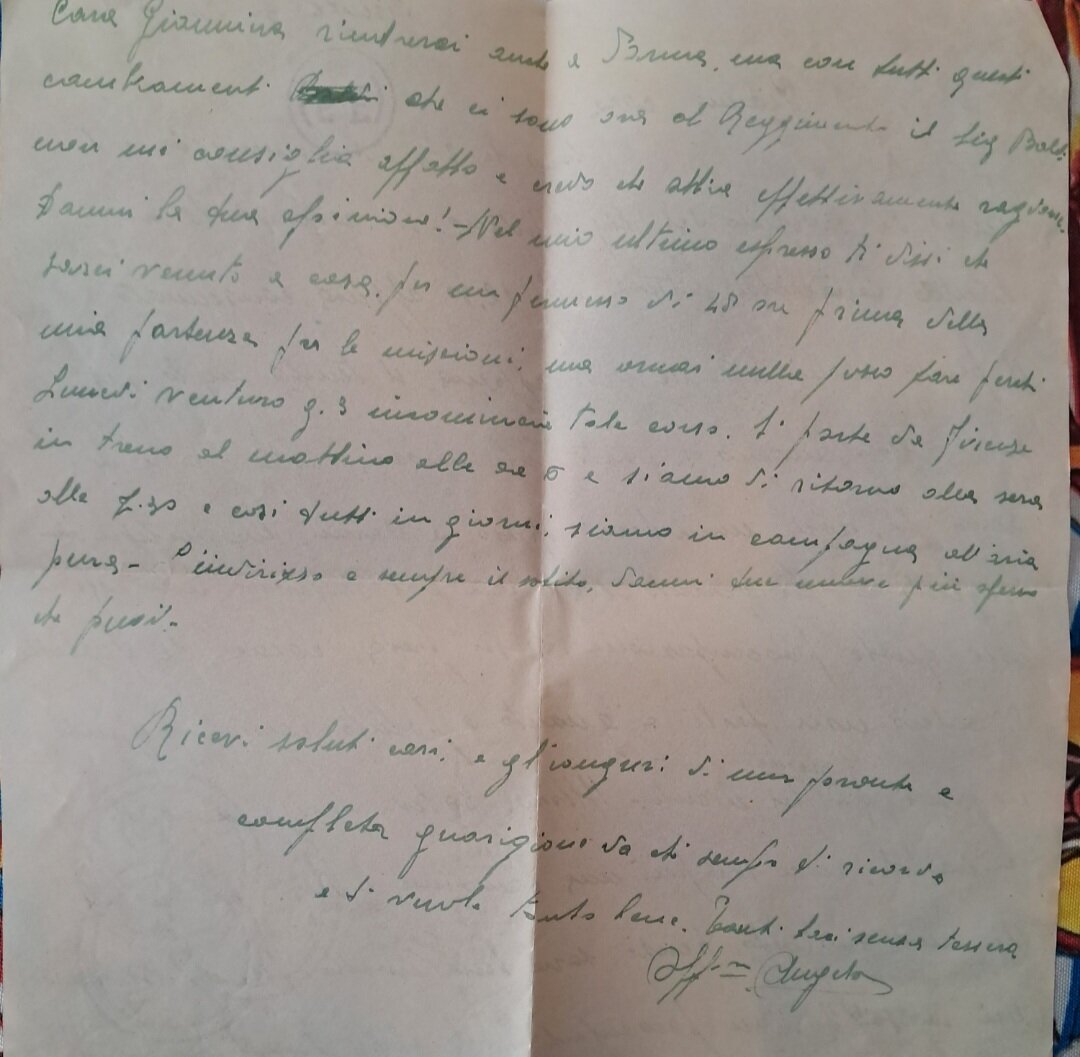 Cara Giannina rientrerei anche a Roma, ma con tutti questi
cambiamenti che ci sono ora al Reggimento il Sig Baldi
non mi consiglia affatto e credo che abbia effettivamente ragione.
Dammi la tua opinione! - Nel mio ultimo espresso ti dissi che
sarei venuto a casa per un permesso di 48 ore prima della
mia partenza per le missioni, ma ormai nulla posso fare perchè
Lunedì venturo g. 3 incomincia tale corso. Si parte da Firenze
in treno al mattino alle ore 6 e siamo di ritorno alla sera
alle 7.30 e così tutti i giorni, siamo in campagna all'aria
pura - L'indirizzo è sempre il solito, dammi tue nuove più spesso
che puoi. -
Ricevi saluti cari, e gli auguri di una pronta e
completa guarigione da chi sempre ti ricorda
e ti vuole tanto bene. Tanti baci senza tessera
Aff.mo Angelo